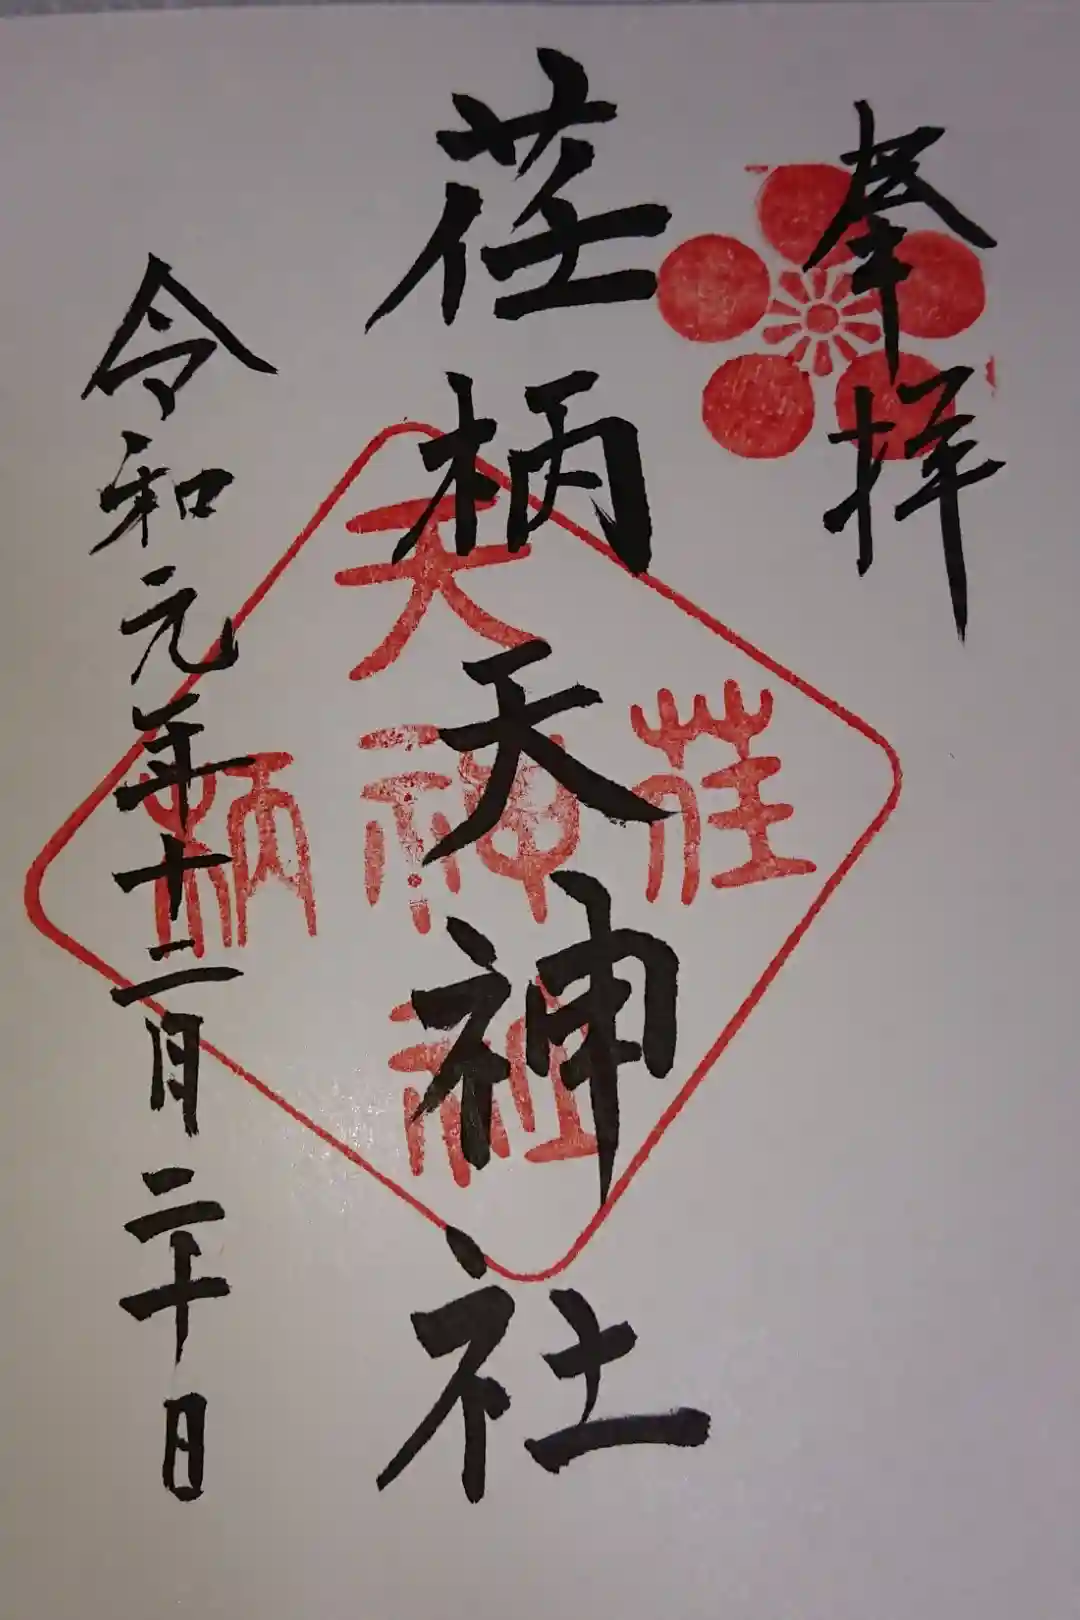 奉拝
荏柄天神社
令和元年十二月二十日
荏柄天神社